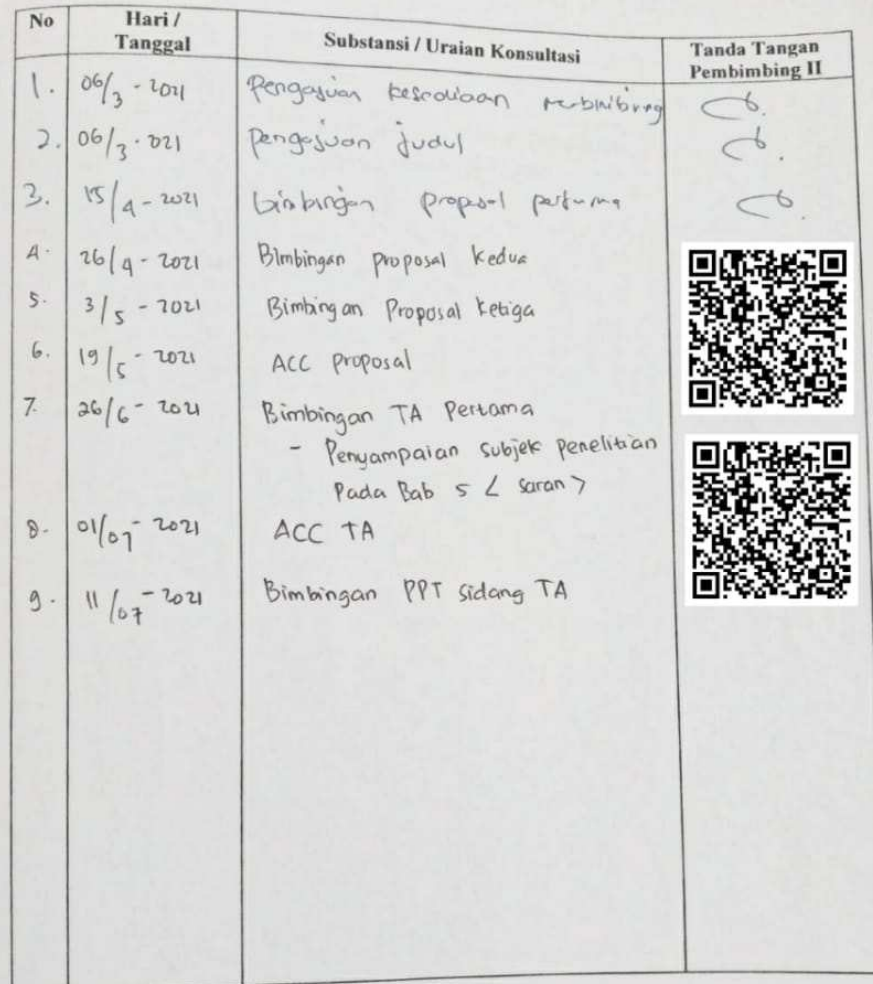 No Hari / Tanggal Substansi / Uraian Konsultasi Tanda Tangan Pembimbing II
1. 06/3 - 2021 Pengajuan kesediaan pembimbing
2. 06/3 - 2021 Pengajuan judul
3. 15/4 - 2021 bimbingan proposal pertama
4. 26/4 - 2021 Bimbingan proposal kedua
5. 3/5 - 2021 Bimbingan Proposal ketiga
6. 19/5 - 2021 ACC proposal
7. 26/6 - 2021 Bimbingan TA Pertama
- Penyampaian subjek penelitian
Pada Bab 5 < saran >
8. 01/07 - 2021 ACC TA
9. 11/07 - 2021 Bimbingan PPT sidang TA